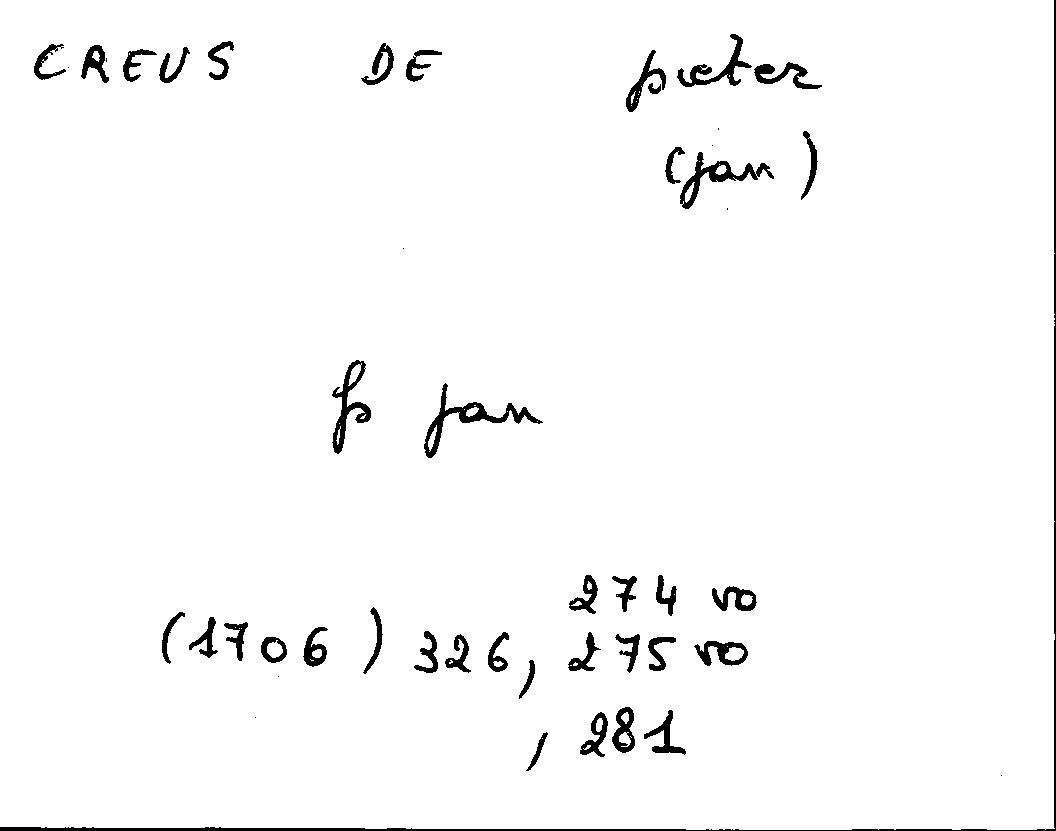 CREUS DE pieter
(jan)
fs jan
274 vo
(1706) 326, 275 vo
, 281